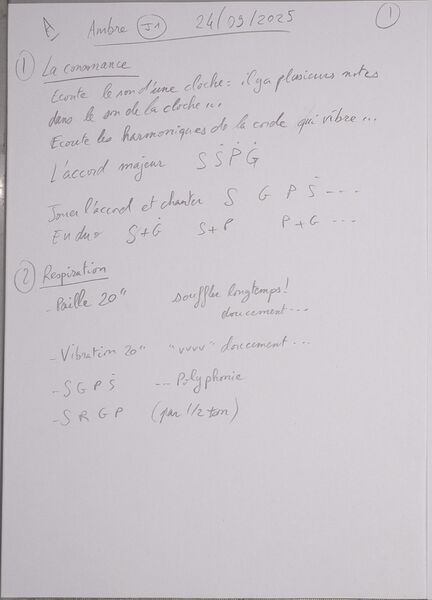 A Ambre J1 24/09/2025 1
1 La consonance
Ecoute le son d'une cloche : il y a plusieurs notes
dans le son de la cloche...
Ecoute les harmoniques de la corde qui vibre...
L'accord majeur S Ṡ Ṗ Ġ
Jouer l'accord et chanter S G P Ṡ ...
En duo S+Ġ S+P P+G ...
2 Respiration
- Paille 20" souffler longtemps!
doucement...
- Vibration 20" "vvvv" doucement...
- S G P Ṡ ... Polyphonie
- S R G P (par 1/2 ton)